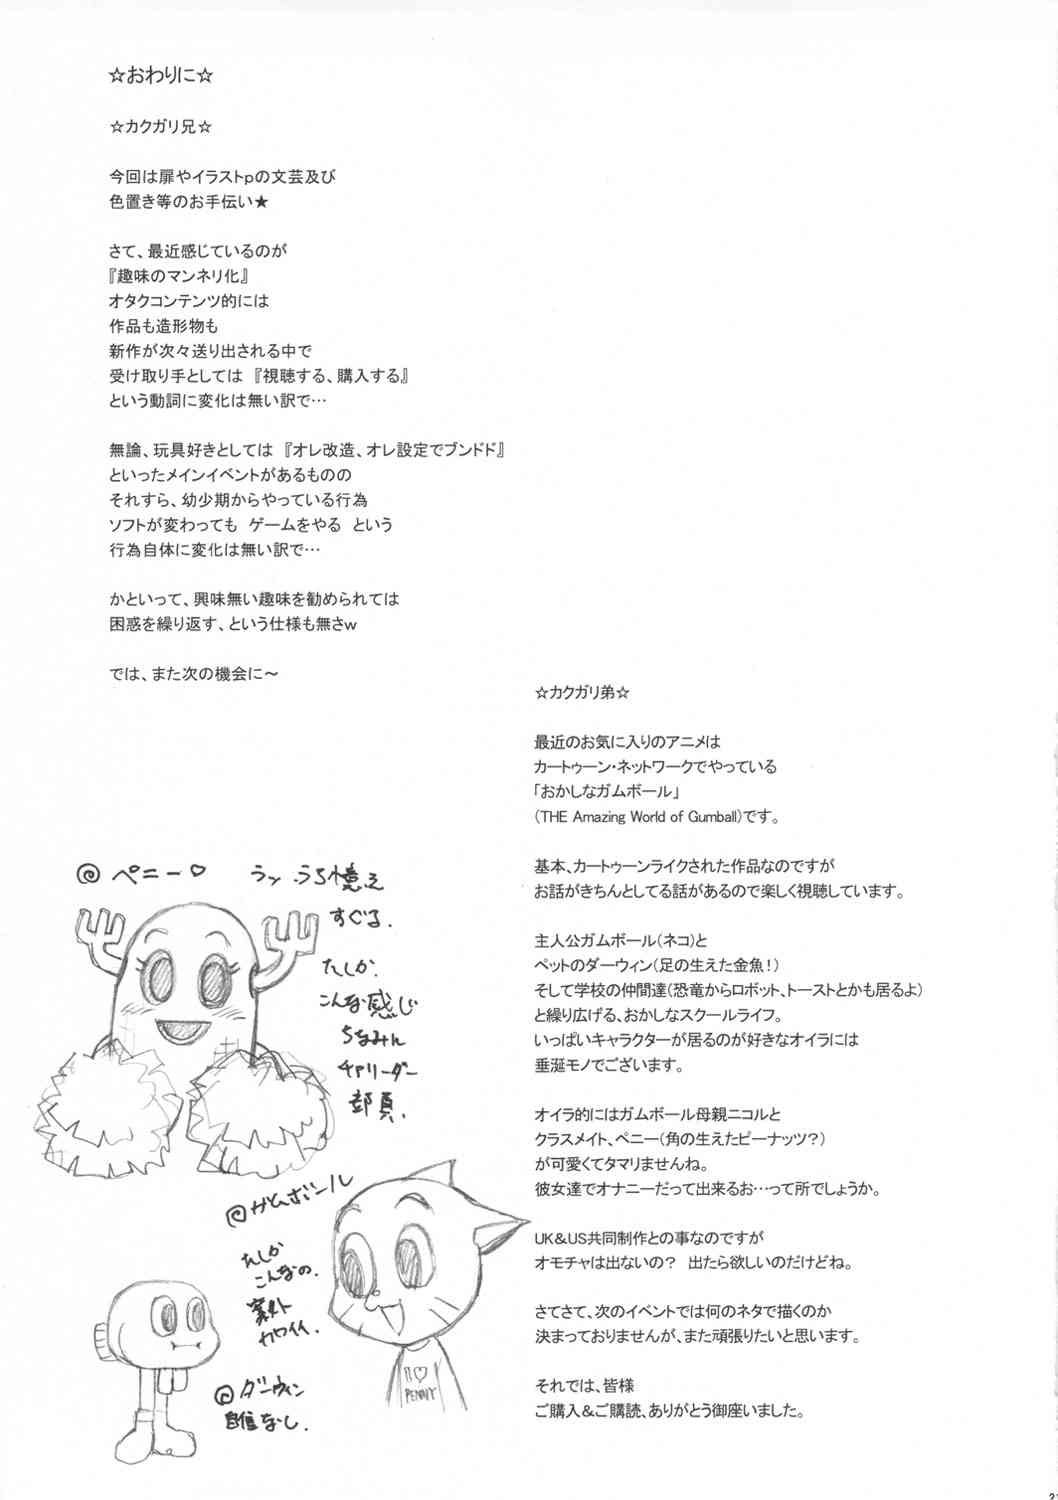 ☆おわりに☆
☆カクガリ兄☆
今回は扉やイラストpの文芸及び
色置き等のお手伝い★
さて、最近感じているのが
『趣味のマンネリ化』
オタクコンテンツ的には
作品も造形物も
新作が次々送り出される中で
受け取り手としては 『視聴する、購入する』
という動詞に変化は無い訳で…
無論、玩具好きとしては 『オレ改造、オレ設定でブンドド』
といったメインイベントがあるものの
それすら、幼少期からやっている行為
ソフトが変わっても ゲームをやる という
行為自体に変化は無い訳で…
かといって、興味無い趣味を勧められては
困惑を繰り返す、という仕様も無さw
では、また次の機会に～
☆カクガリ弟☆
最近のお気に入りのアニメは
カートゥーン・ネットワークでやっている
「おかしなガムボール」
(THE Amazing World of Gumball)です。
基本、カートゥーンライクされた作品なのですが
お話がきちんとしてる話があるので楽しく視聴しています。
主人公ガムボール(ネコ)と
ペットのダーウィン(足の生えた金魚!)
そして学校の仲間達(恐竜からロボット、トーストとかも居るよ)
と繰り広げる、おかしなスクールライフ。
いっぱいキャラクターが居るのが好きなオイラには
垂涎モノでございます。
オイラ的にはガムボール母親ニコルと
クラスメイト、ペニー(角の生えたピーナッツ?)
が可愛くてタマリませんね。
彼女達でオナニーだって出来るお…って所でしょうか。
UK&US共同制作との事なのですが
オモチャは出ないの? 出たら欲しいのだけどね。
さてさて、次のイベントでは何のネタで描くのか
決まっておりませんが、また頑張りたいと思います。
それでは、皆様
ご購入&ご購読、ありがとう御座いました。
@ペニー♡
うろ憶え
すぎる.
たしか.
こんな感じ
ちなみに
チアリーダー
部員.
@ガムボール
たしか
こんなの.
案外
カワイイ.
I♡
PENNY
@ダーウィン
自信なし.